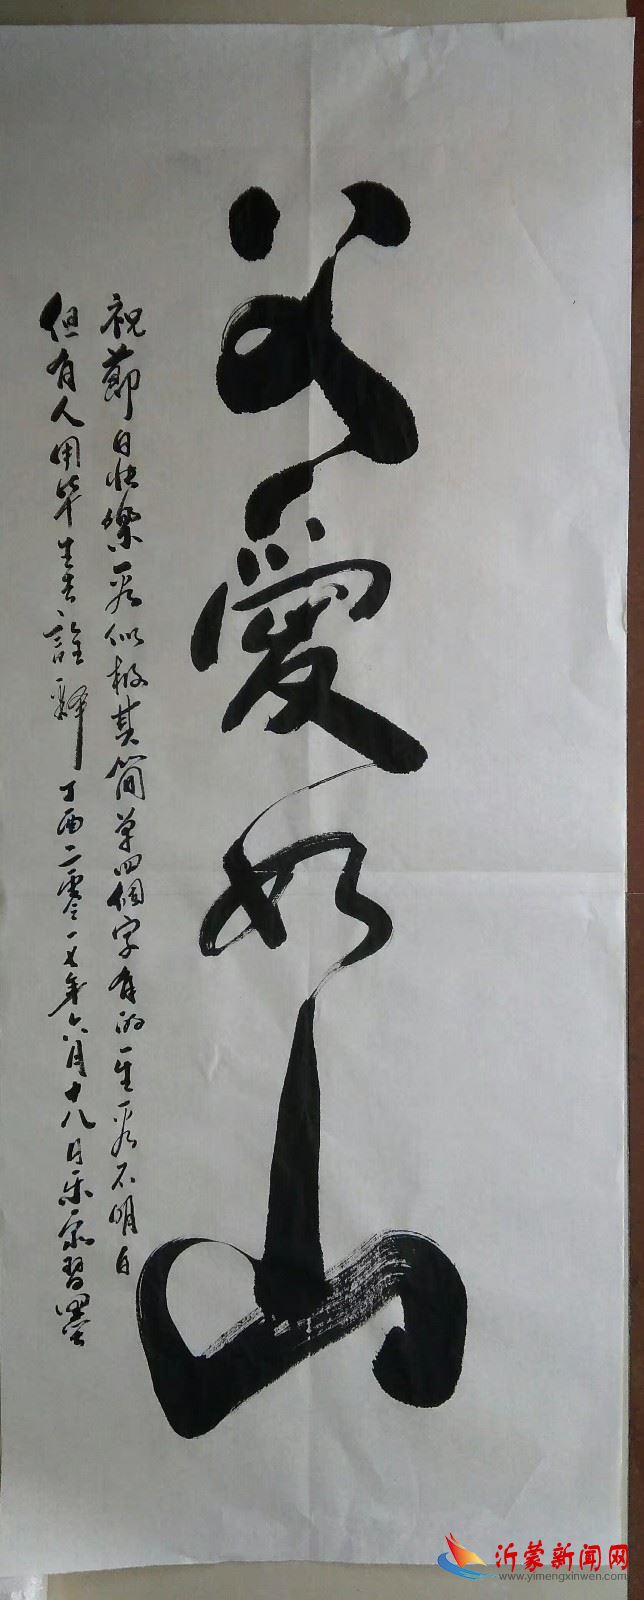 父愛如山
祝節日快樂看似極其簡單四個字有的一生看不明白
但有人用毕生去詮釋丁酉二零一七年六月十八日乐泉習墨
沂蒙新闻网
www.yimengxinwen.com